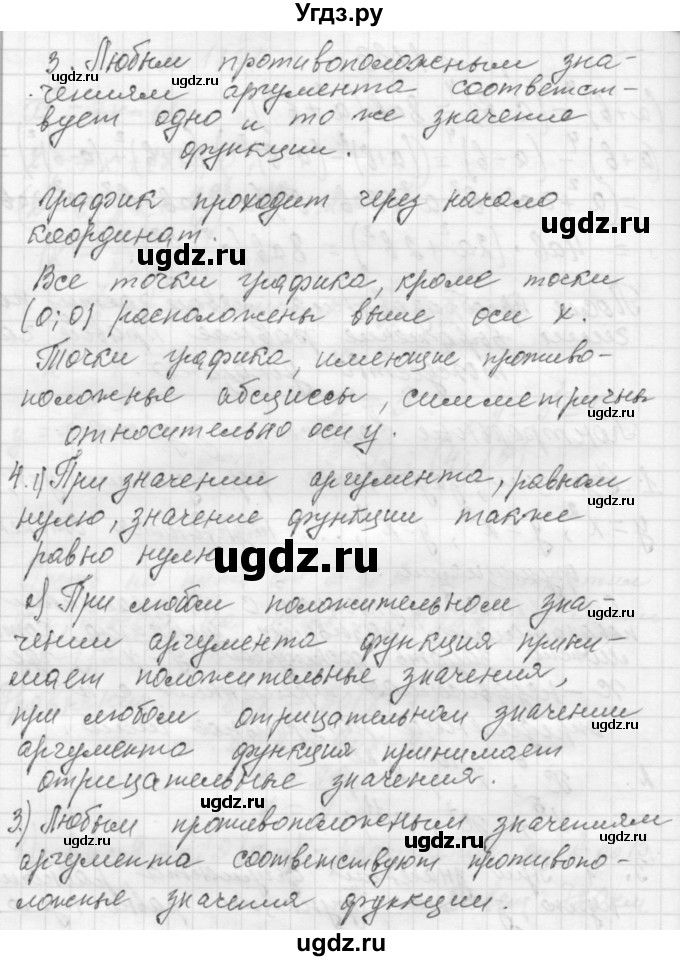 Угдз.ру
3. Любым противоположеным зна-
чениям аргумента соответст-
вует одно и то же значение
функции.
График проходит через начало
координат.
Все точки графика, кроме точки
(0; 0) расположены выше оси x.
Точки графика, имеющие противо-
положные абсциссы, симметричны
относительно оси y.
4. 1) При значении аргумента, равном
нулю, значение функции также
равно нулю
2) При любом положительном зна-
чении аргумента функция прини-
мает положительные значения,
при любом отрицательном значении
аргумента функция принимает
отрицательные значения.
3.) Любым противоположеным значениям
аргумента соответствуют противопо-
ложные значения функции.
ugdz.ru